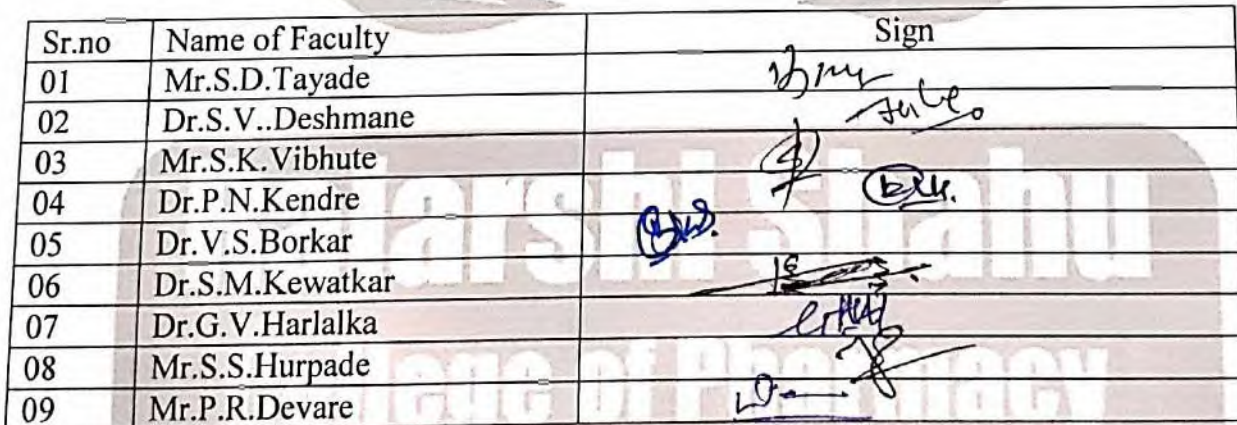 Sr.no Name of Faculty Sign
01 Mr.S.D.Tayade
02 Dr.S.V..Deshmane
03 Mr.S.K.Vibhute
04 Dr.P.N.Kendre
05 Dr.V.S.Borkar
06 Dr.S.M.Kewatkar
07 Dr.G.V.Harlalka
08 Mr.S.S.Hurpade
09 Mr.P.R.Devare